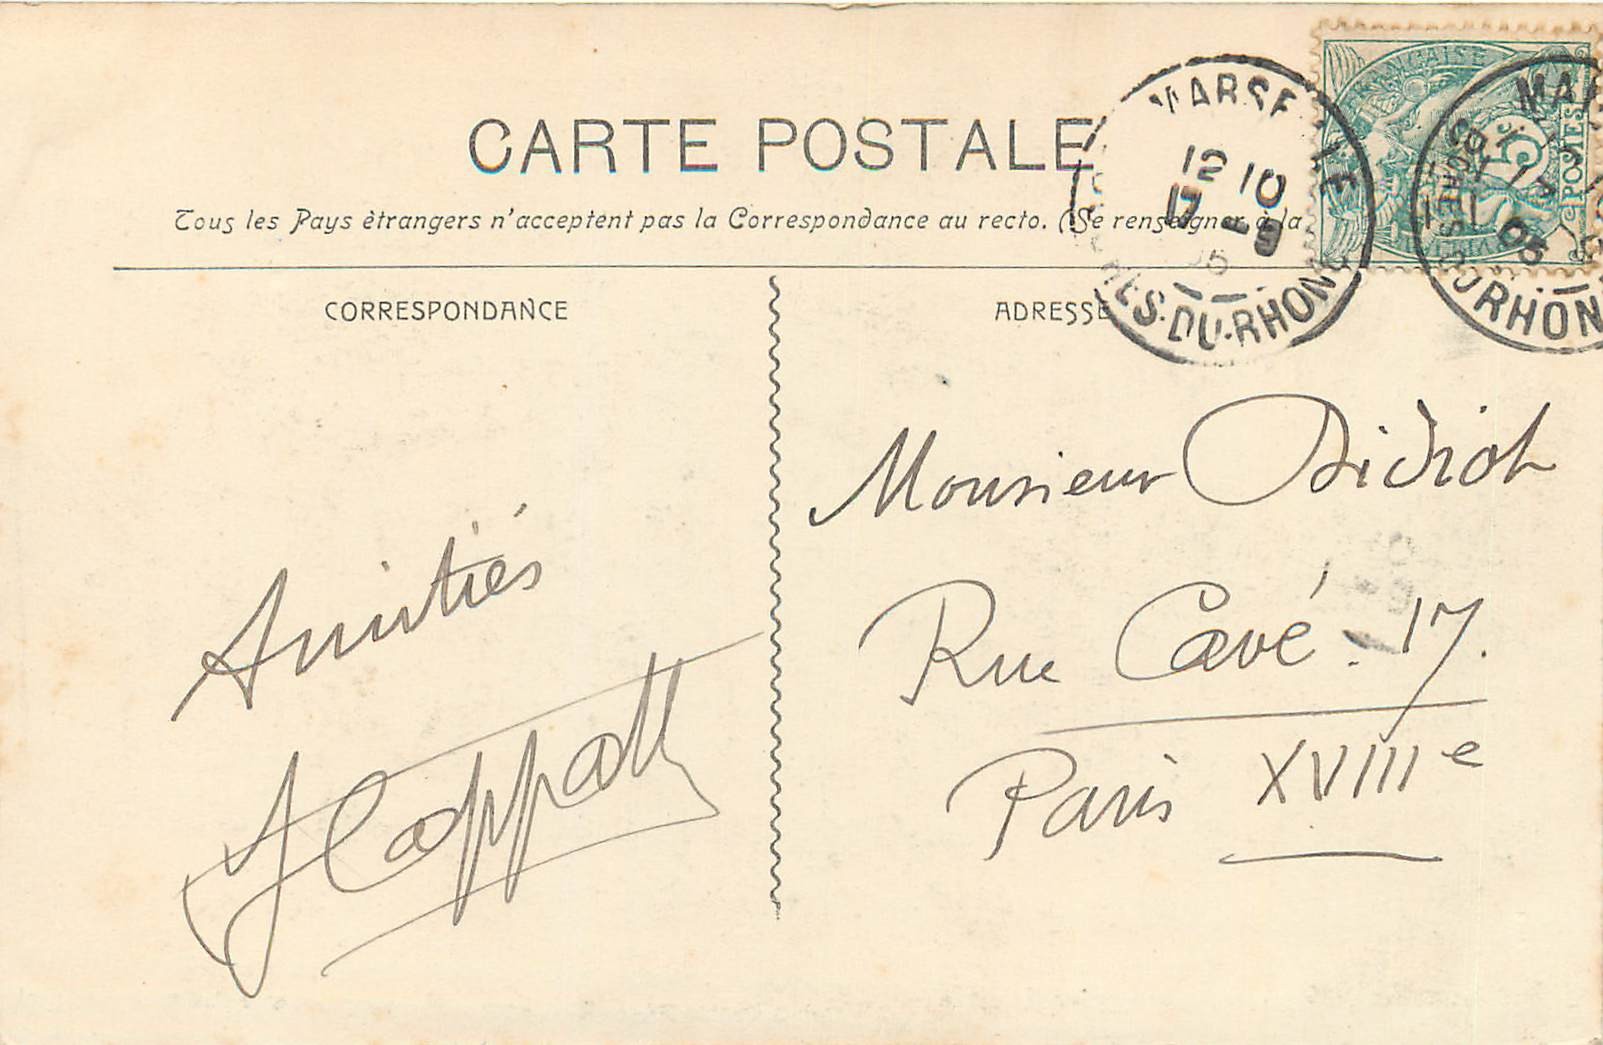 CARTE POSTALE
Tous les Pays étrangers n'acceptent pas la Correspondance au recto. (Se renseigner à la
CORRESPONDANCE
ADRESSE
MARSEILLE
12 10
17 -9
RHONE
FRANÇAISE
5c
POSTES
MAR
05
RHON
Amitiés
Monsieur Didiot
Rue Cavé . 17.
Paris XVIIIe